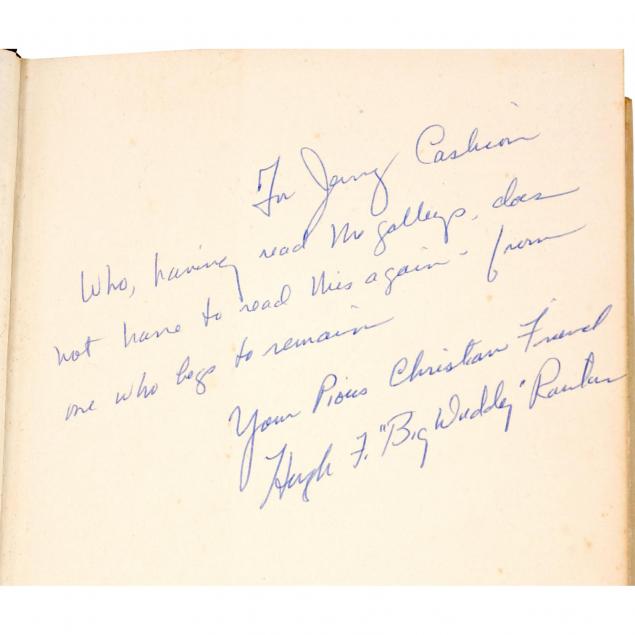 For Jerry Cashion
Who, having read the galleys, does
not have to read this again - from
one who begs to remain
Your Pious Christian Friend
Hugh F. "Big Wuddy" Rankin